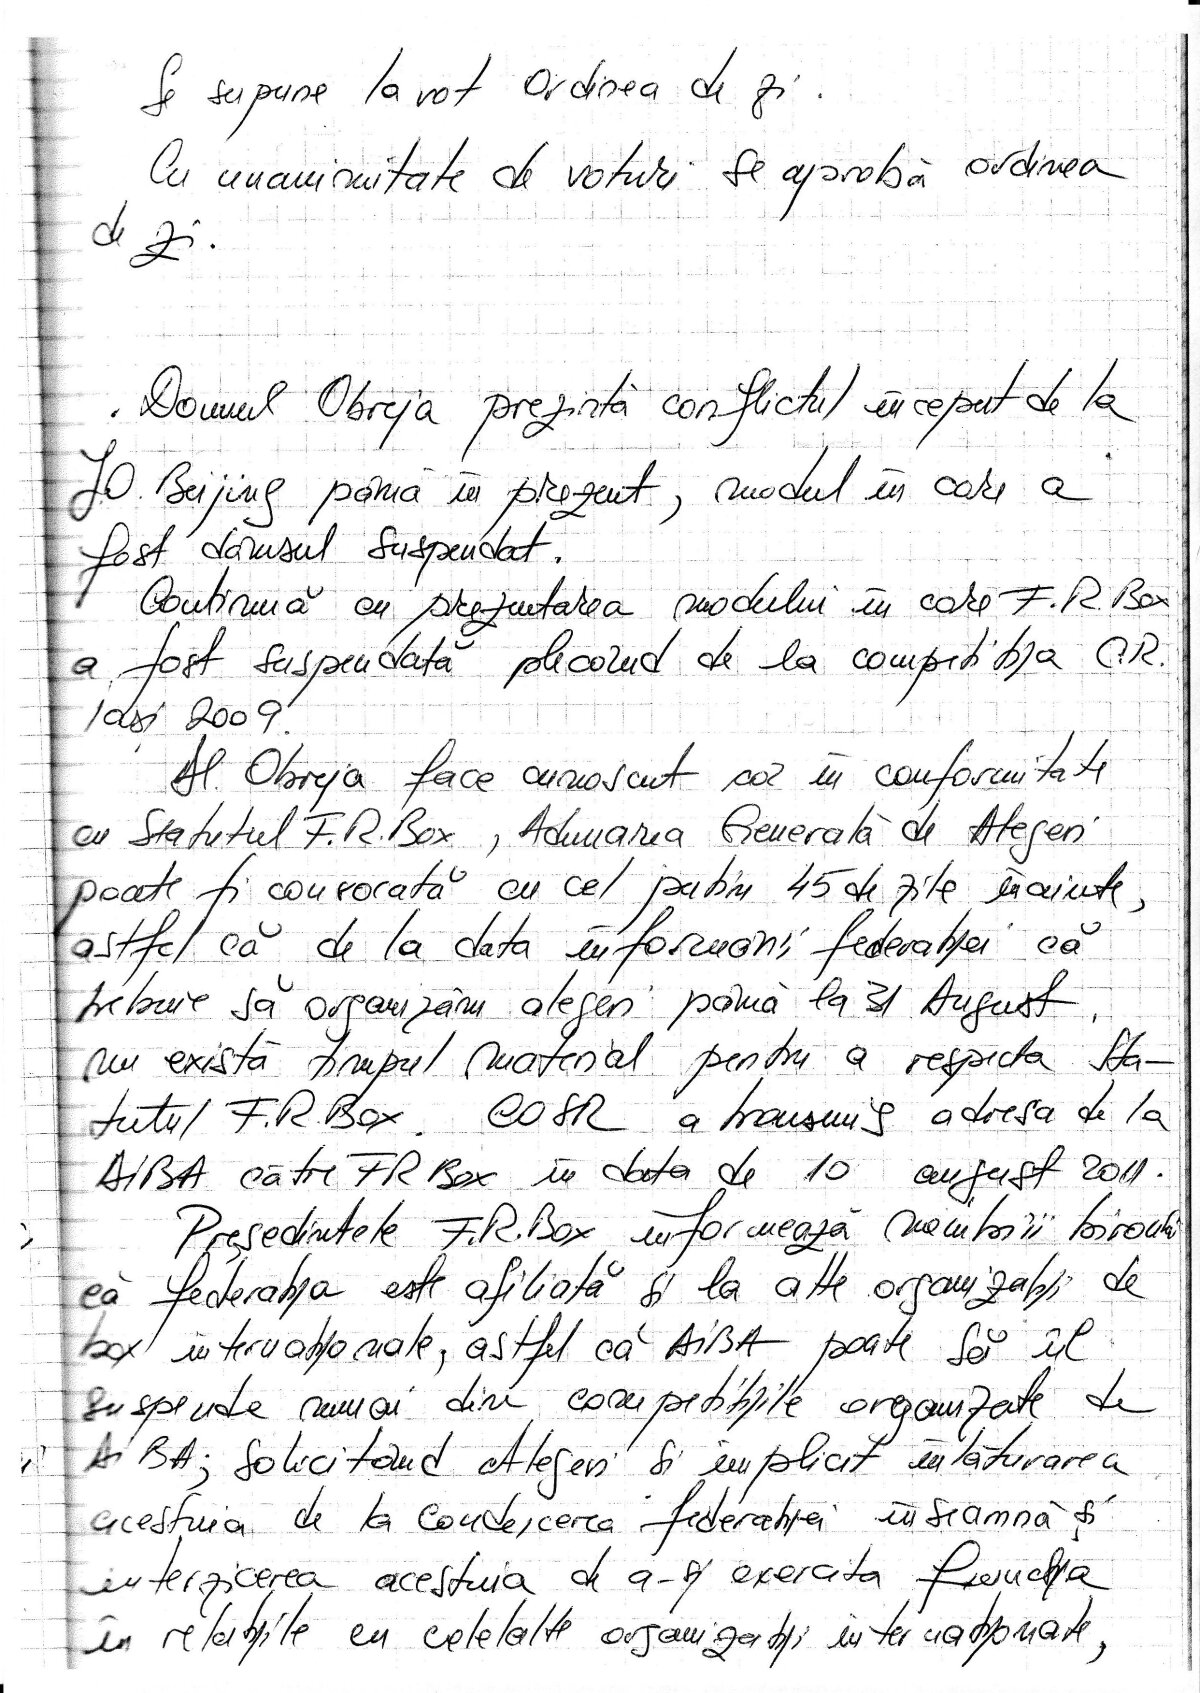 Se supune la vot Ordinea de zi.
Cu unanimitate de voturi se aprobă ordinea
de zi.
. Domnul Obreja prezintă conflictul început de la
J.O. Beijing până în prezent, modul în care a
fost dânsul suspendat.
Continuă cu prezentarea modului în care F.R.Box
a fost suspendată plecând de la competiția C.R.
Iași 2009.
Al. Obreja face cunoscut că în conformitate
cu Statutul F.R.Box, Adunarea Generală de Alegeri
poate fi convocată cu cel puțin 45 de zile înainte,
astfel că de la data informării federației că
trebuie să organizăm alegeri până la 31 August,
nu există timpul material pentru a respecta Sta-
tutul F.R.Box. COSR a transmis adresa de la
AIBA către FRBox în data de 10 august 2011.
Președintele F.R.Box informează membrii biroului
că federația este afiliată și la alte organizații de
box internaționale, astfel că AIBA poate să îl
suspende numai din competițiile organizate de
AIBA; solicitând Alegeri și implicit înlăturarea
acestuia de la conducerea federației înseamnă și
interzicerea acestuia de a-și exercita funcția
în relațiile cu celelalte organizații internaționale,